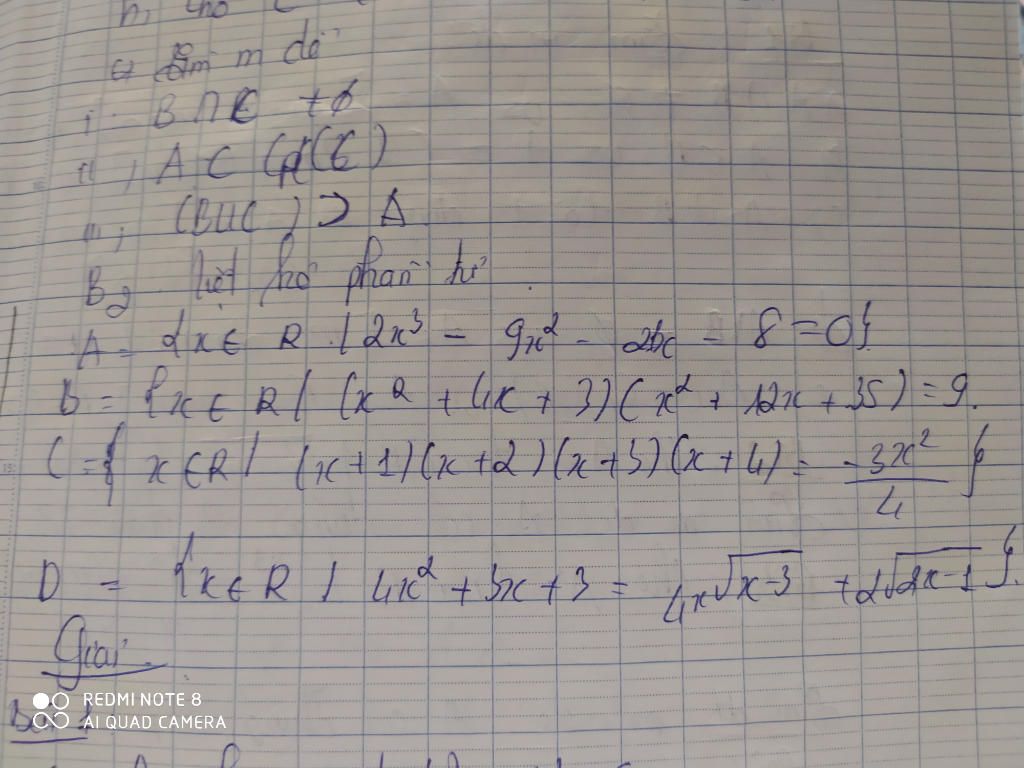 m dể
i. B ∩ C ≠ ϕ
ii, A ⊂
iii, (B ∪ C) ⊃ A
B2 liệt kê phần tử.
A = {x ∈ R | 2x³ - 9x² - 2x - 8 = 0}
B = {x ∈ R | (x² + 4x + 3)(x² + 12x + 35) = 9.
C = { x ∈ R | (x+1)(x+2)(x+3)(x+4) = -3x²/4 }
D = {x ∈ R | 4x² + 3x + 3 = 4x√x-3 + 2√2x-1}.
Giải
REDMI NOTE 8
AI QUAD CAMERA